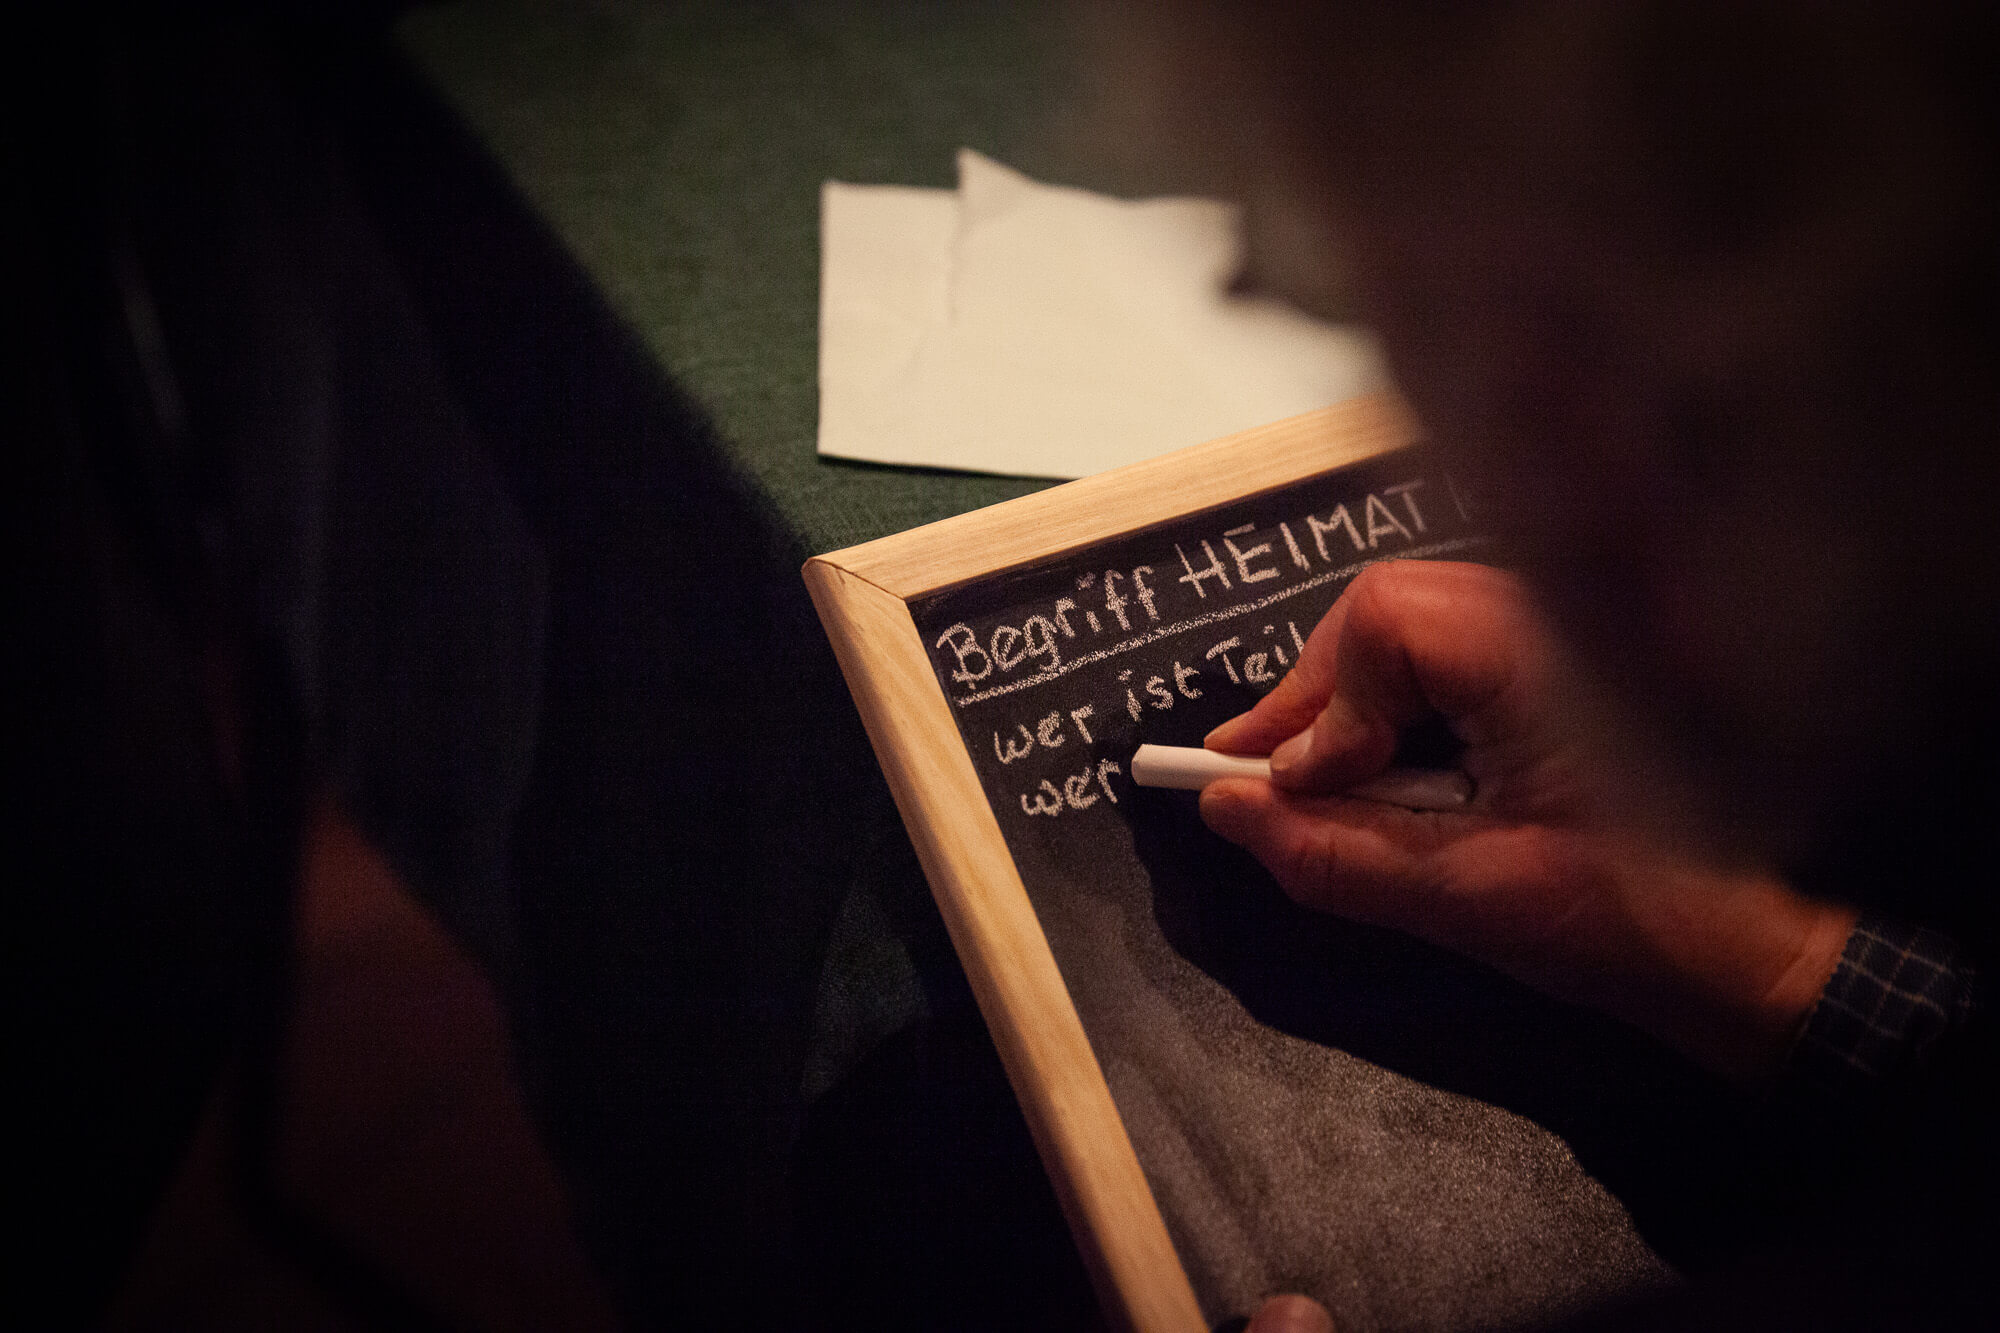 Begriff HEIMAT
wer ist Teil
wer